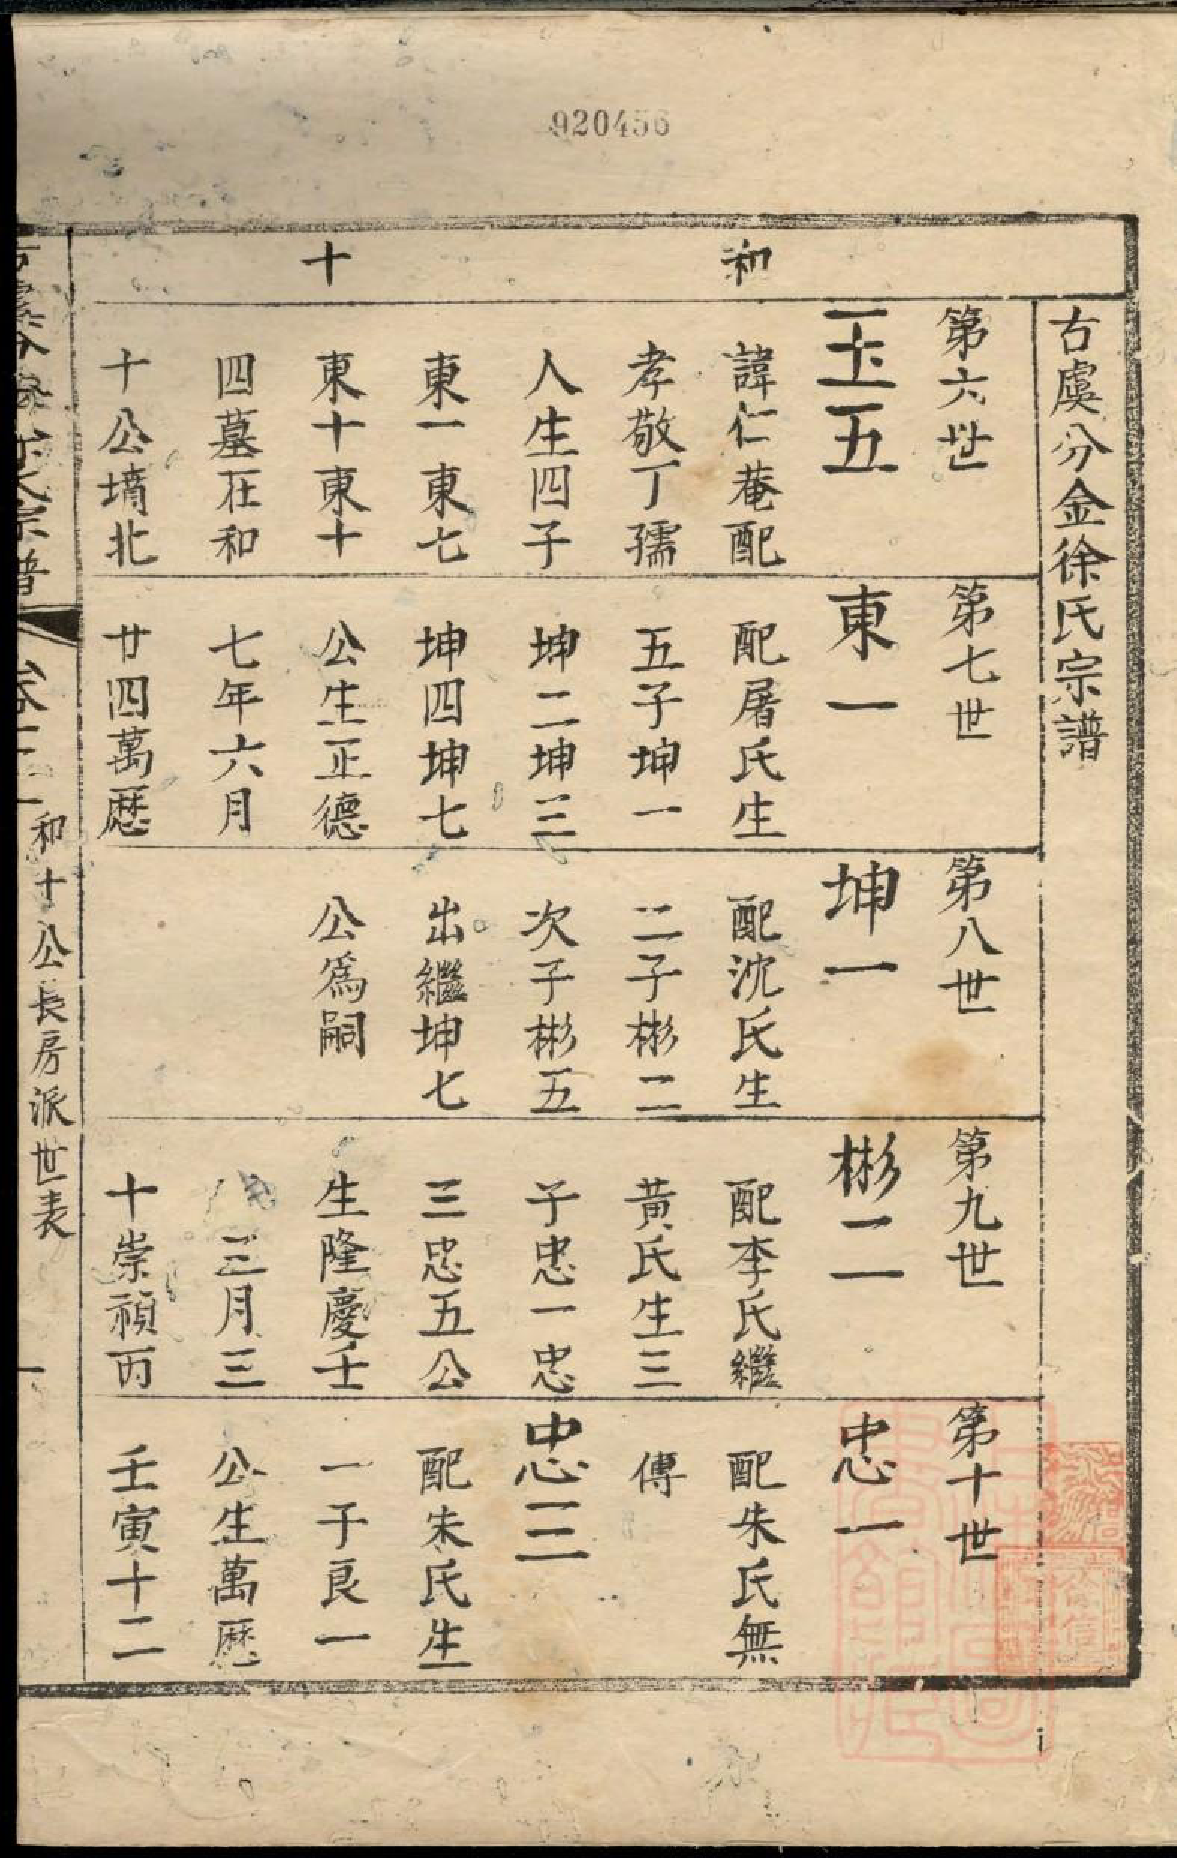 920456
古虞分金徐氏宗譜
和
十
第六世
玉五
諱仁菴配
孝敬丁孺
人生四子
東一東七
東十東十
四墓在和
十公墳北
第七世
東一
配屠氏生
五子坤一
坤二坤三
坤四坤七
公生正德
七年六月
廿四萬歷
第八世
坤一
配沈氏生
二子彬二
次子彬五
出繼坤七
公爲嗣
第九世
彬二
配李氏繼
黃氏生三
子忠一忠
三忠五公
生隆慶壬
三月三
十崇禎丙
第十世
忠一
配朱氏無
傳
忠三
配朱氏生
一子良一
公生萬歷
壬寅十二
宗譜
卷二
和十公長房派世表
一